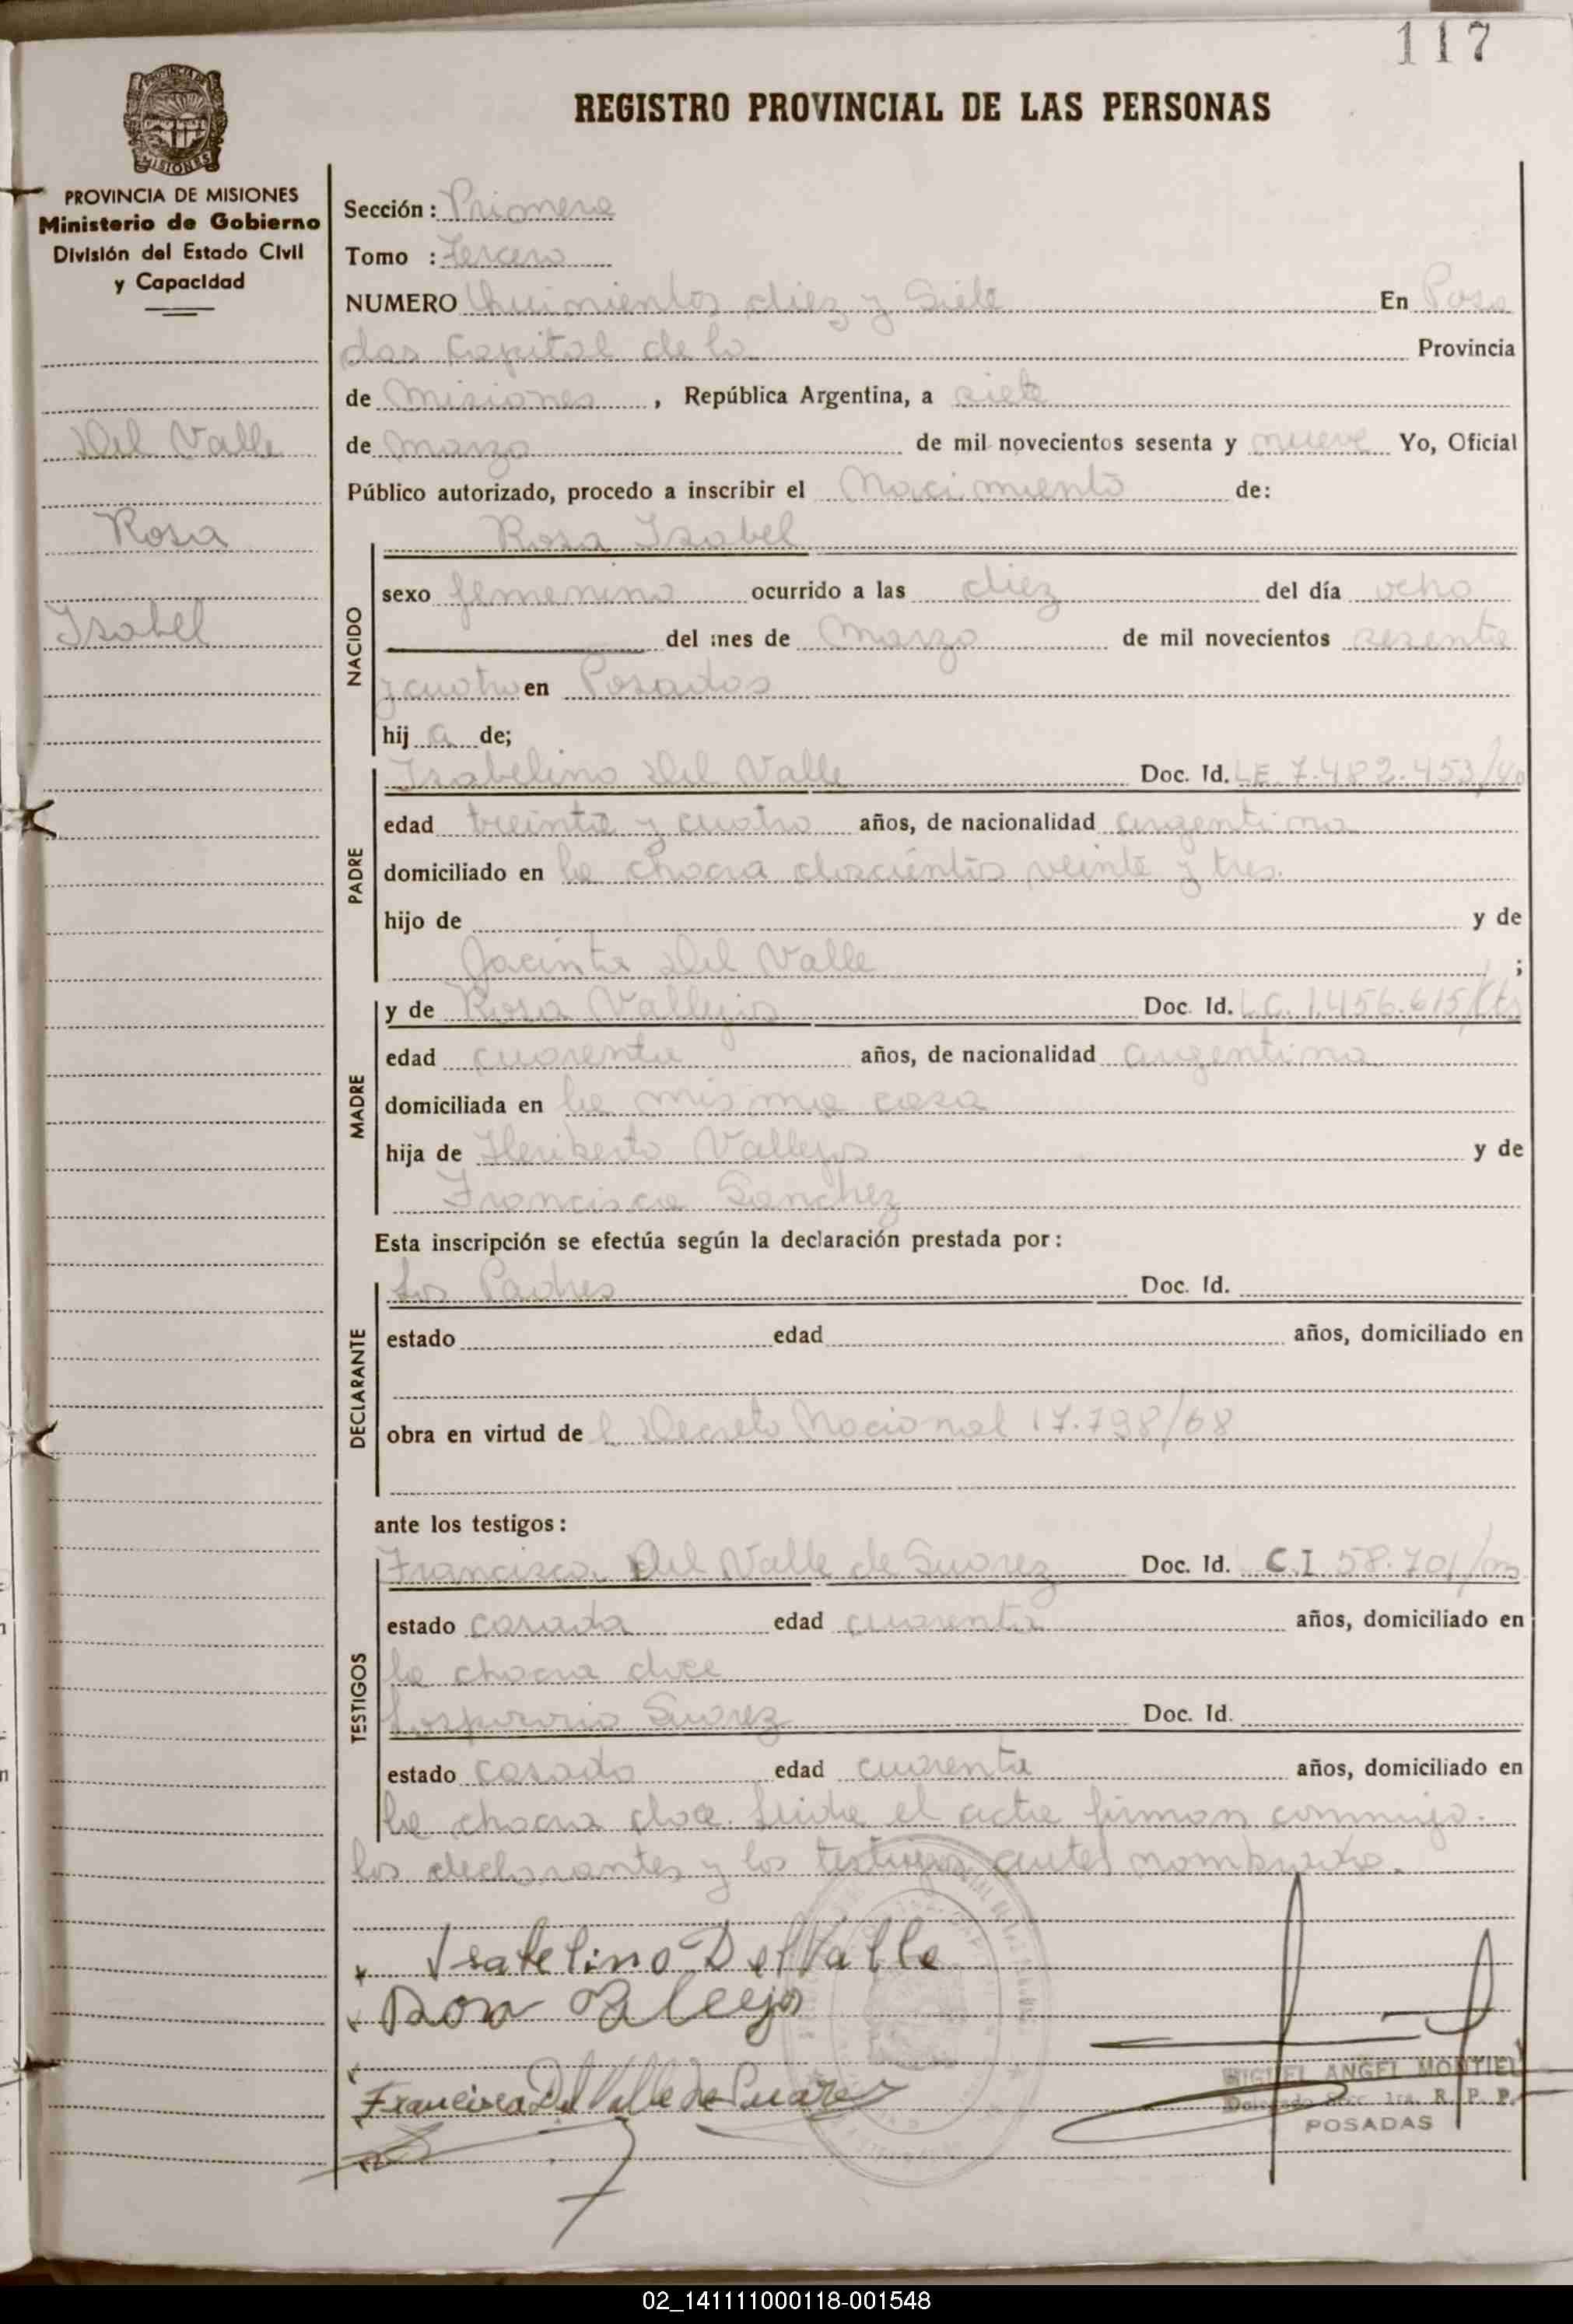 117
REGISTRO PROVINCIAL DE LAS PERSONAS
PROVINCIA DE MISIONES
MISIONES
PROVINCIA DE MISIONES
Ministerio de Gobierno
División del Estado Civil
y Capacidad
Del Valle
Rosa
Isabel
Sección: Primera
Tomo : Tercero
NUMERO Quinientos diez y Siete En Posa
das Capital de la Provincia
de Misiones, República Argentina, a siete
de Marzo de mil novecientos sesenta y nueve Yo, Oficial
Público autorizado, procedo a inscribir el Nacimiento de:
NACIDO
Rosa Isabel
sexo femenino ocurrido a las diez del día ocho
del mes de Marzo de mil novecientos sesenta
y cuatro en Posadas
hij a de;
PADRE
Isabelino Del Valle Doc. Id. L.E. 7.482.453
edad treinta y cuatro años, de nacionalidad argentina
domiciliado en la chacra doscientos veinte y tres.
hijo de y de
Jacinta Del Valle ;
MADRE
y de Rosa Vallejos Doc. Id. L.C. 1.456.615
edad cuarenta años, de nacionalidad argentina
domiciliada en la misma casa
hija de Heriberto Vallejos y de
Francisca Sanchez
Esta inscripción se efectúa según la declaración prestada por:
DECLARANTE
Los Padres Doc. Id.
estado edad años, domiciliado en
obra en virtud de l Decreto Nacional 17.798/68
ante los testigos:
TESTIGOS
Francisca Del Valle de Suarez Doc. Id. C.I 58.701
estado casada edad cuarenta años, domiciliado en
la chacra doce
Suarez Doc. Id.
estado casado edad cuarenta años, domiciliado en
la chacra doce. Leida el acta firman conmigo
los declarantes y los testigos antes nombrados.
Isabelino Del Valle
Rosa Vallejos
Francisca Del Valle de Suarez
MIGUEL ANGEL MONTIEL
Delegado Secc. 1ra. R. P. P.
POSADAS
02_141111000118-001548